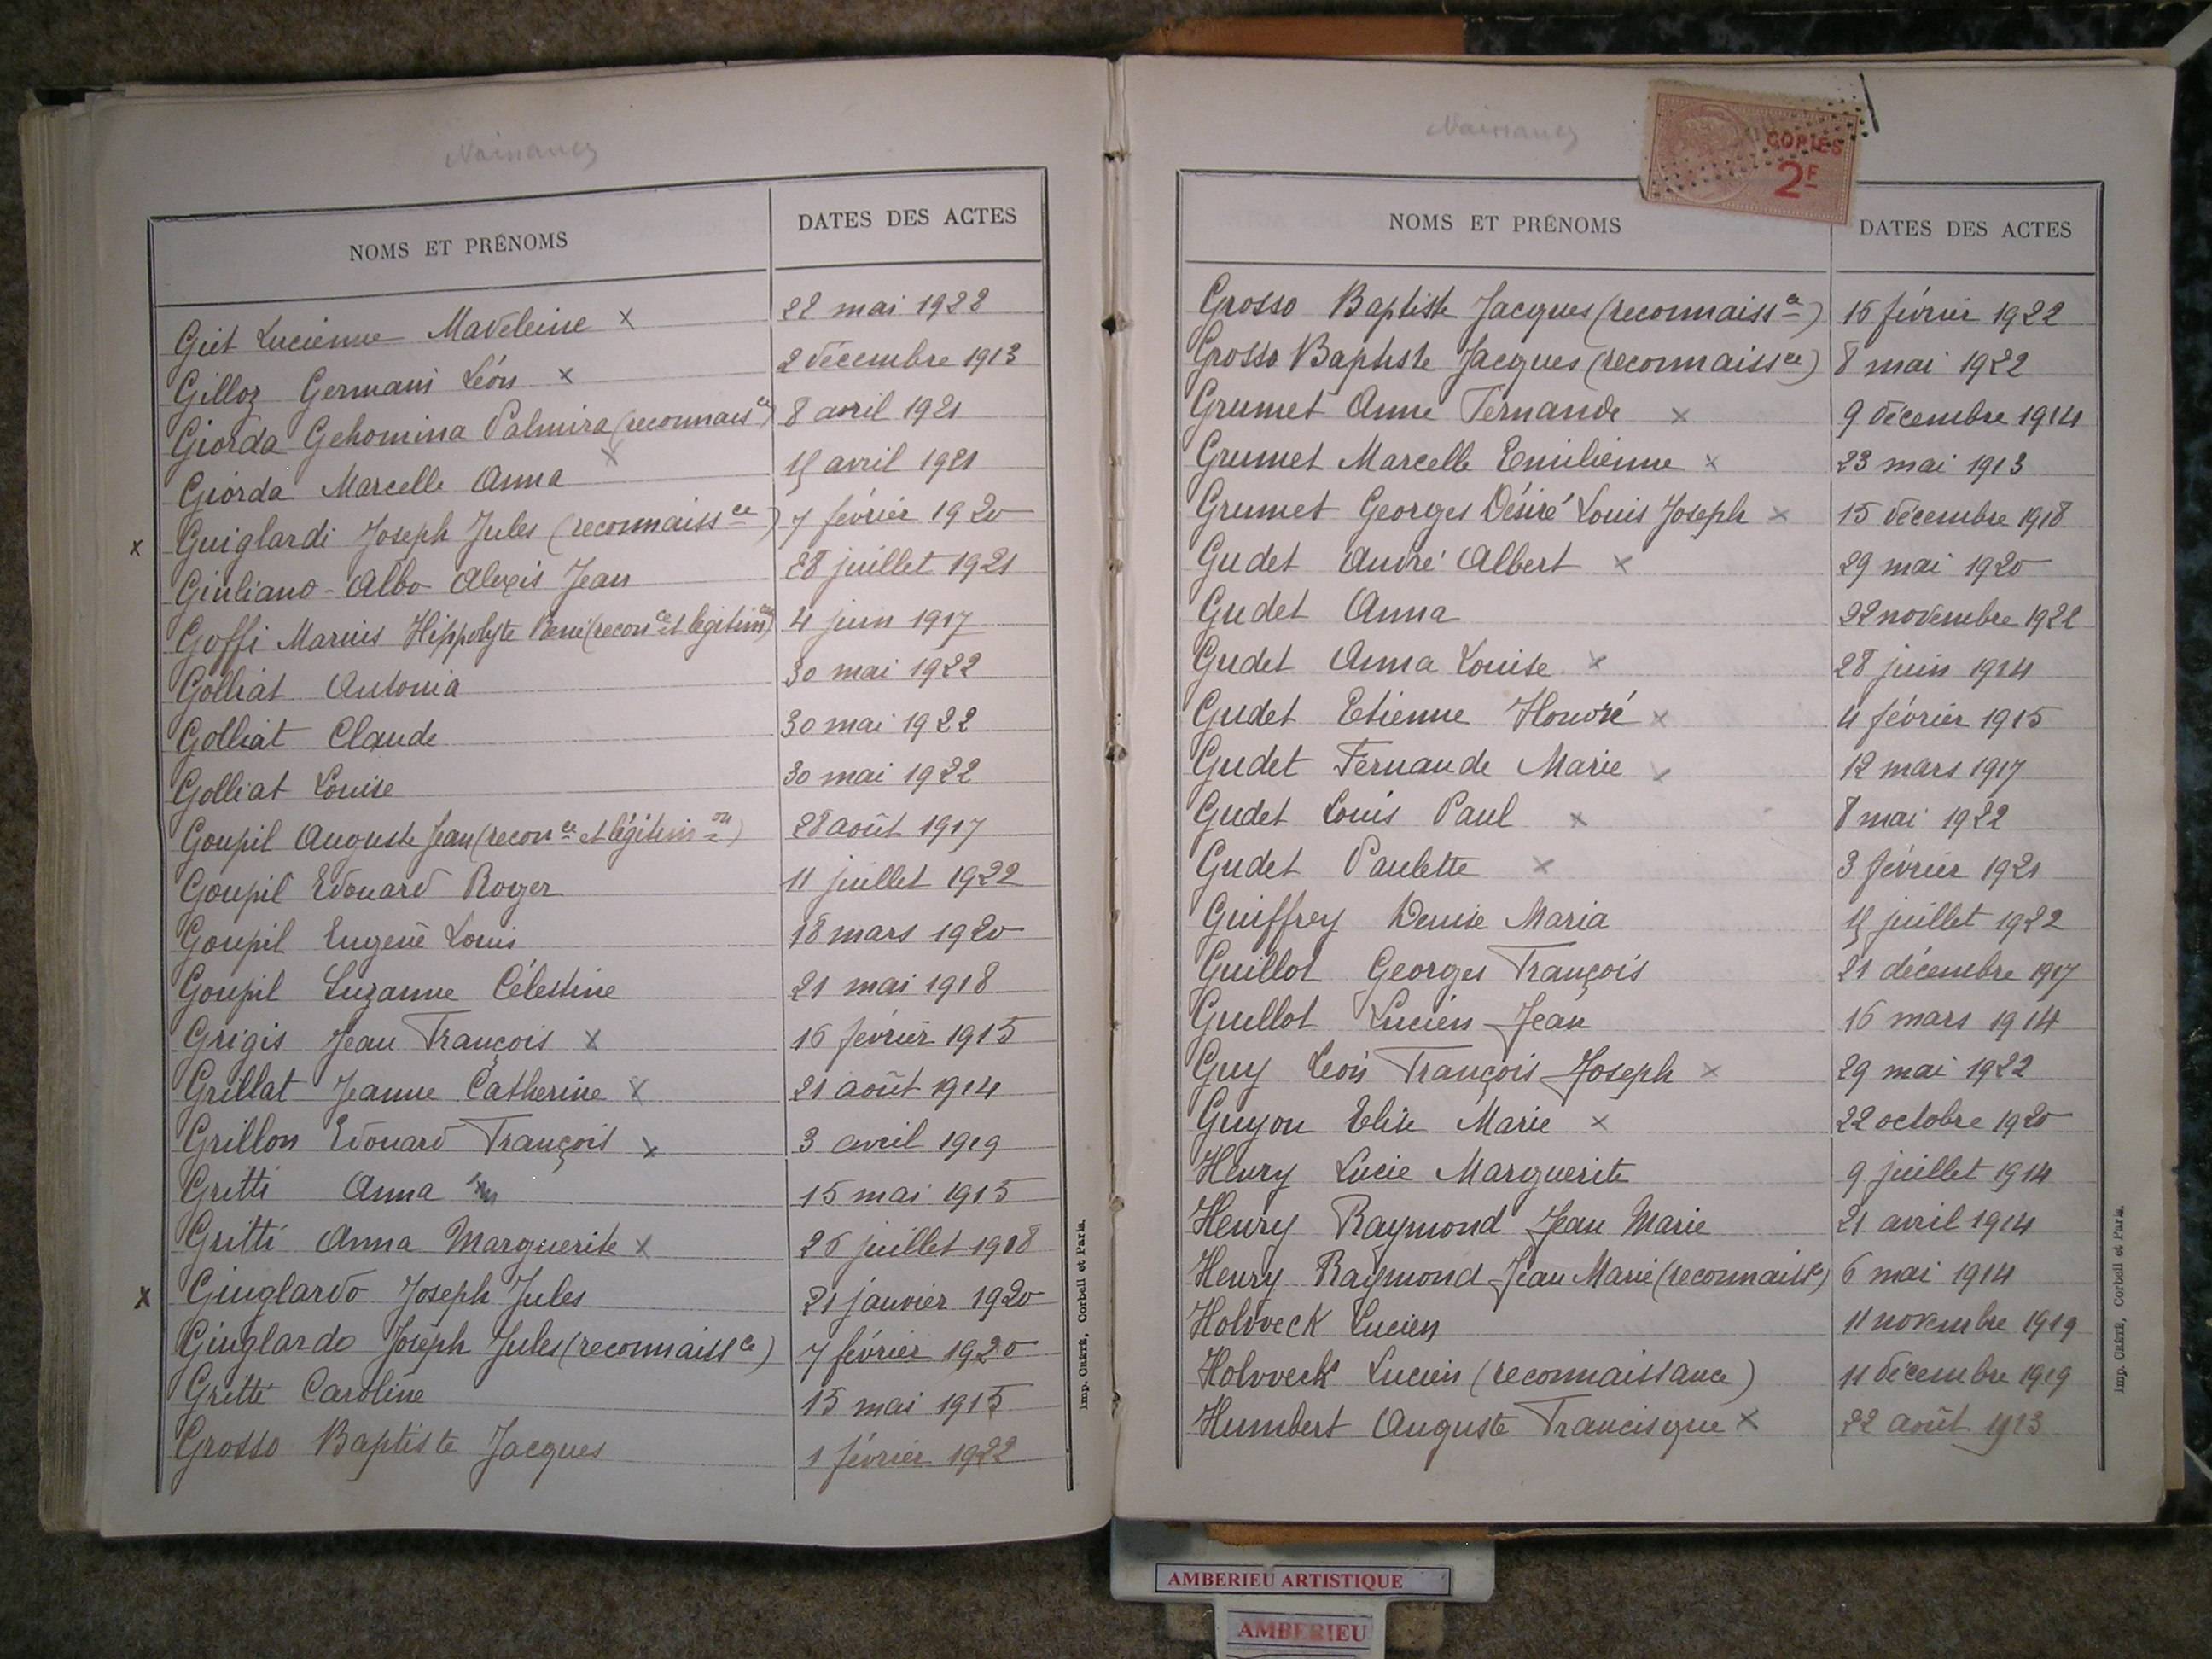 Naissances
NOMS ET PRÉNOMS
DATES DES ACTES
Giet Lucienne Madeleine x 22 mai 1922
Gilloz Germain Léon x 2 décembre 1913
Giorda Gehomina Palmira (reconnaisce) 8 avril 1921
Giorda Marcelle Anna x 15 avril 1921
x Guiglardi Joseph Jules (reconnaissce) 7 février 1920
Giuliano-Albo Alexis Jean 28 juillet 1921
Goffi Marius Hippolyte René (reconce et légitimon) 4 juin 1917
Golliat Antonia 30 mai 1922
Golliat Claude 30 mai 1922
Golliat Louise 30 mai 1922
Goupil Auguste Jean (reconce et légitimon) 28 août 1917
Goupil Edouard Roger 11 juillet 1922
Goupil Eugène Louis 18 mars 1920
Goupil Suzanne Célestine 21 mai 1918
Grigis Jean François x 16 février 1915
Grillat Jeanne Catherine x 21 août 1914
Grillon Edouard François x 3 avril 1919
Gritti Anna 15 mai 1915
Gritti Anna Marguerite x 26 juillet 1918
x Giuglardo Joseph Jules 21 janvier 1920
Giuglardo Joseph Jules (reconnaissce) 7 février 1920
Gritti Caroline 15 mai 1915
Grosso Baptiste Jacques 1 février 1922
Imp. CRÉTÉ, Corbeil et Paris.
Naissances
COPIES
2F
NOMS ET PRÉNOMS
DATES DES ACTES
Grosso Baptiste Jacques (reconnaissce) 16 février 1922
Grosso Baptiste Jacques (reconnaissce) 8 mai 1922
Grumet Anne Fernande x 9 décembre 1914
Grumet Marcelle Emilienne x 23 mai 1913
Grumet Georges Désiré Louis Joseph x 15 décembre 1918
Gudet André Albert x 29 mai 1920
Gudet Anna 22 novembre 1922
Gudet Anna Louise x 28 juin 1914
Gudet Etienne Honoré x 4 février 1915
Gudet Fernande Marie x 12 mars 1917
Gudet Louis Paul x 8 mai 1922
Gudet Paulette x 3 février 1921
Guiffrey Denise Maria 15 juillet 1922
Guillot Georges François 21 décembre 1917
Guillot Lucien Jean 16 mars 1914
Guy Léon François Joseph x 29 mai 1922
Guyon Elise Marie x 22 octobre 1920
Henry Lucie Marguerite 9 juillet 1914
Henry Raymond Jean Marie 21 avril 1914
Henry Raymond Jean Marie (reconnaissce) 6 mai 1914
Holvveck Lucien 11 novembre 1919
Holvveck Lucien (reconnaissance) 11 décembre 1919
Humbert Auguste Francisque x 22 août 1913
Imp. CRÉTÉ, Corbeil et Paris.
AMBERIEU ARTISTIQUE
AMBERIEU